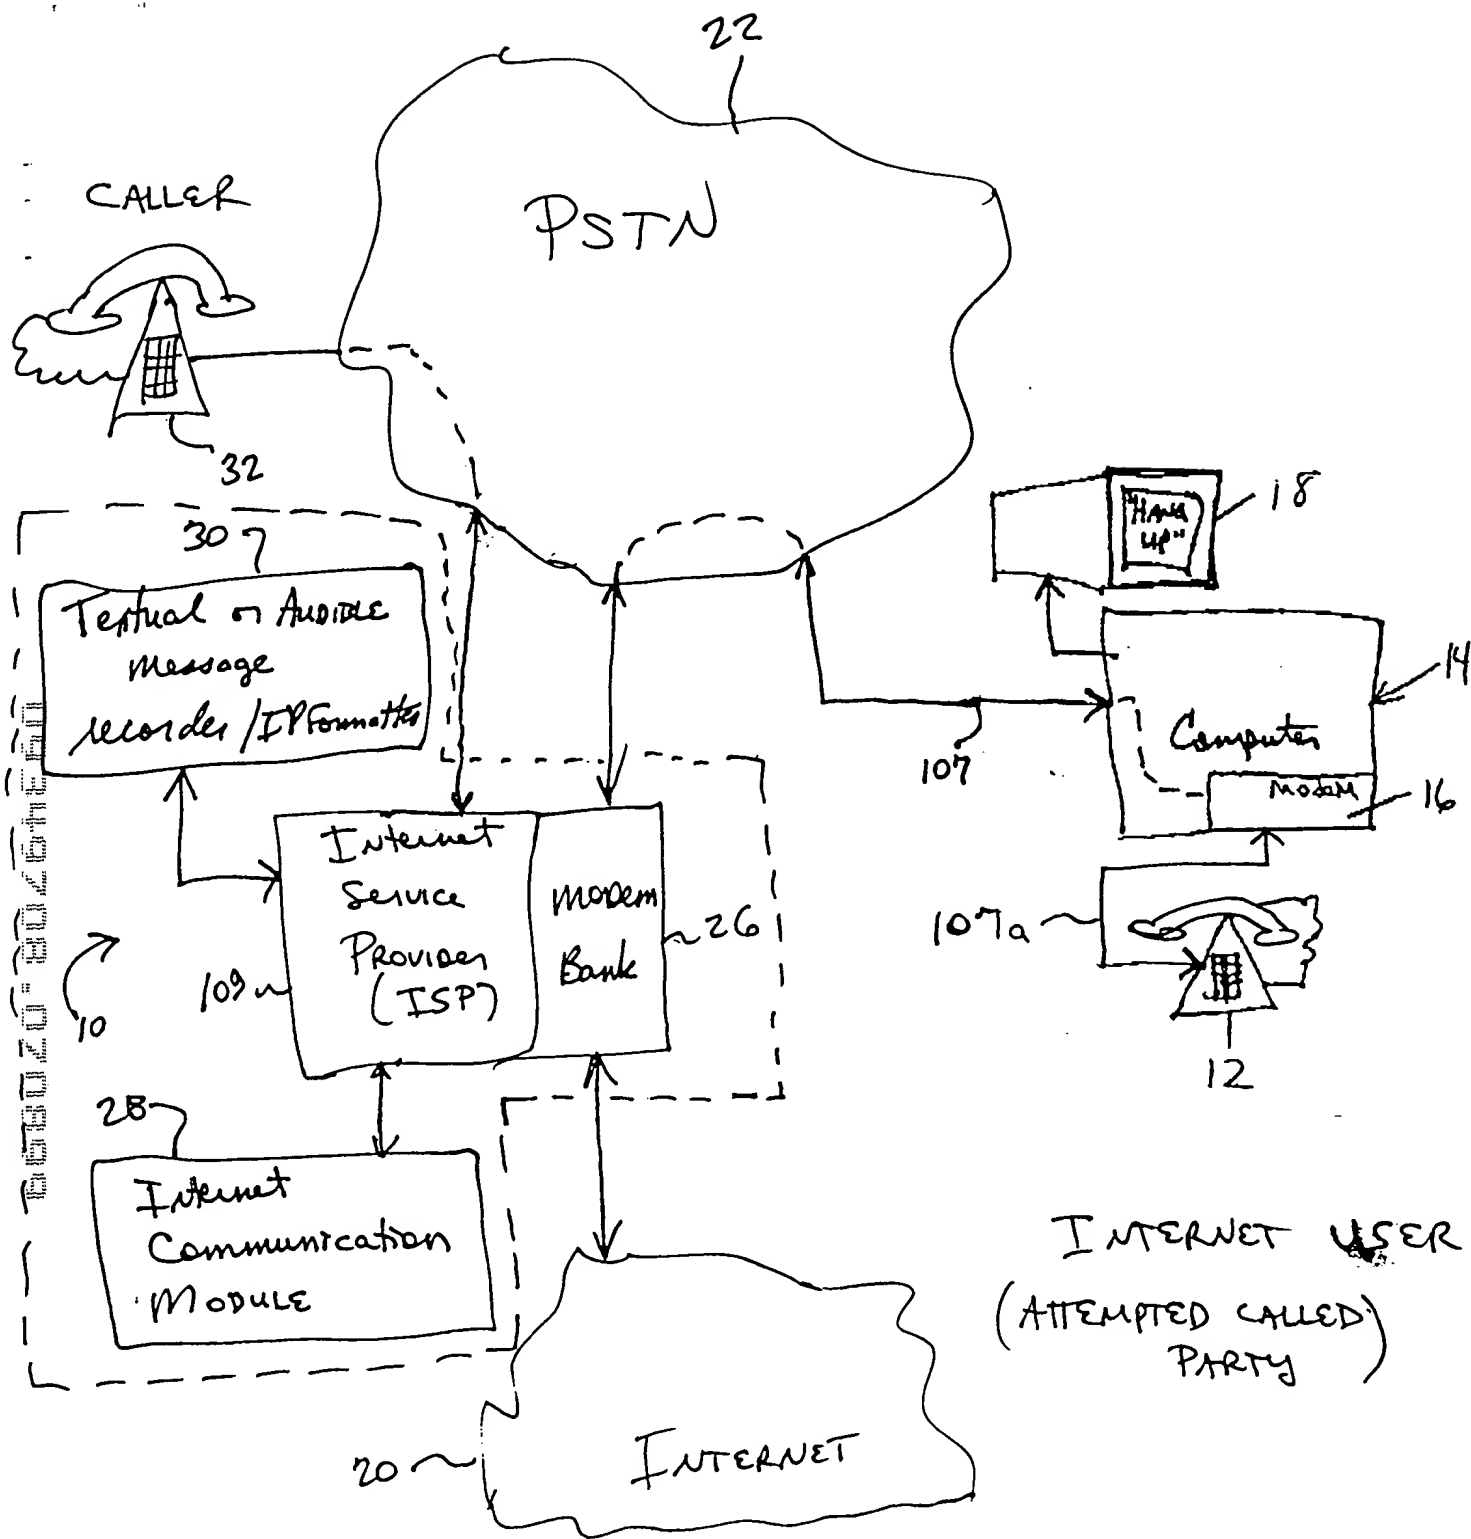 22
CALLER
PSTN
32
30
Textual or AUDIBLE
Message
recorder/IP Formatter
"HANG
UP"
18
14
Computer
MODEM
16
107
107a
12
Internet
Service
PROVIDER
(ISP)
MODEM
Bank
26
109
10
28
Internet
Communication
MODULE
INTERNET USER
(ATTEMPTED CALLED)
PARTY
20
INTERNET
09349708.070899